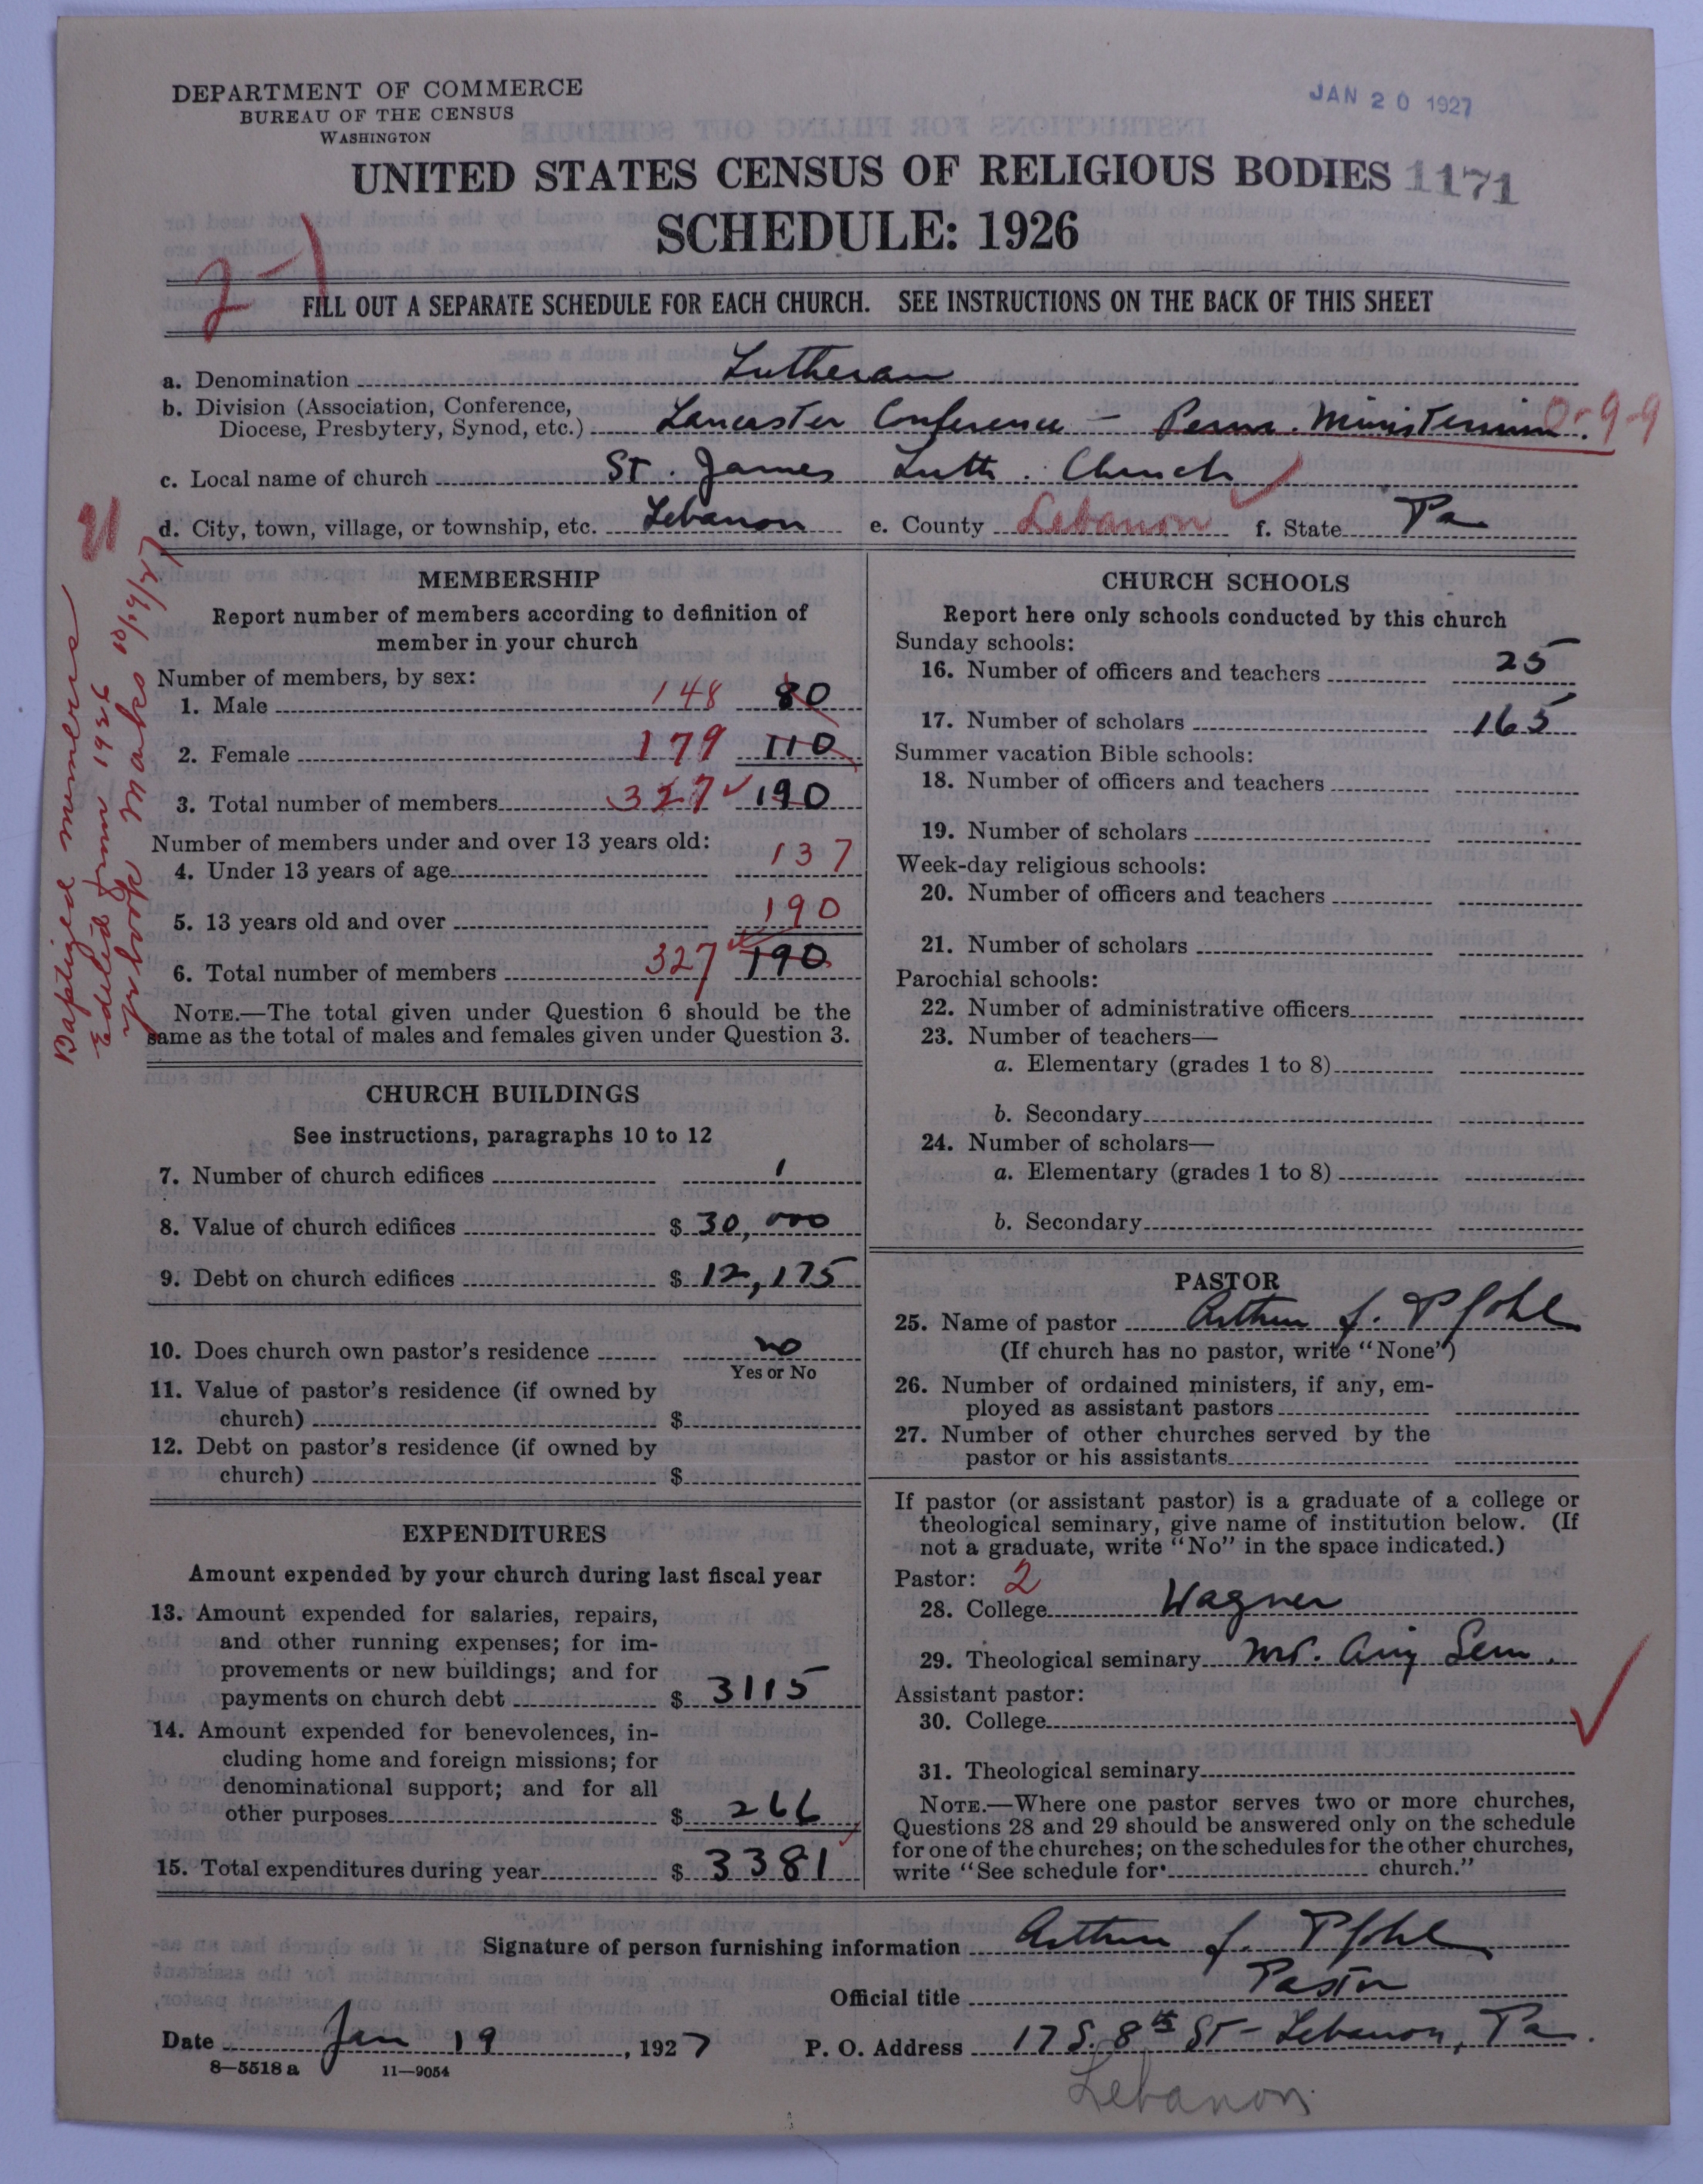 DEPARTMENT OF COMMERCE
BUREAU OF THE CENSUS
WASHINGTON
JAN 20 1927
UNITED STATES CENSUS OF RELIGIOUS BODIES 1171
SCHEDULE: 1926
2-1
FILL OUT A SEPARATE SCHEDULE FOR EACH CHURCH. SEE INSTRUCTIONS ON THE BACK OF THIS SHEET
a. Denomination Lutheran
b. Division (Association, Conference,
Diocese, Presbytery, Synod, etc.) Lancaster Conference – Penna. Ministerium. 0-9-9
c. Local name of church St. James Luth. Church
d. City, town, village, or township, etc. Lebanon e. County Lebanon f. State Pa
Baptized members
Edited from 1935
MEMBERSHIP
Report number of members according to definition of
member in your church
Number of members, by sex:
1. Male 148 80
2. Female 179 110
3. Total number of members 327 190
Number of members under and over 13 years old:
4. Under 13 years of age 137
5. 13 years old and over 190
6. Total number of members 327 190
NOTE.—The total given under Question 6 should be the
same as the total of males and females given under Question 3.
CHURCH BUILDINGS
See instructions, paragraphs 10 to 12
7. Number of church edifices 1
8. Value of church edifices $ 30,000
9. Debt on church edifices $ 12,175
10. Does church own pastor's residence no
Yes or No
11. Value of pastor's residence (if owned by
church) $
12. Debt on pastor's residence (if owned by
church) $
EXPENDITURES
Amount expended by your church during last fiscal year
13. Amount expended for salaries, repairs,
and other running expenses; for im-
provements or new buildings; and for
payments on church debt $ 3115
14. Amount expended for benevolences, in-
cluding home and foreign missions; for
denominational support; and for all
other purposes $ 266
15. Total expenditures during year $ 3381
CHURCH SCHOOLS
Report here only schools conducted by this church
Sunday schools:
16. Number of officers and teachers 25
17. Number of scholars 165
Summer vacation Bible schools:
18. Number of officers and teachers
19. Number of scholars
Week-day religious schools:
20. Number of officers and teachers
21. Number of scholars
Parochial schools:
22. Number of administrative officers
23. Number of teachers—
a. Elementary (grades 1 to 8)
b. Secondary
24. Number of scholars—
a. Elementary (grades 1 to 8)
b. Secondary
PASTOR
25. Name of pastor Arthur J. Pfohl
(If church has no pastor, write "None")
26. Number of ordained ministers, if any, em-
ployed as assistant pastors
27. Number of other churches served by the
pastor or his assistants
If pastor (or assistant pastor) is a graduate of a college or
theological seminary, give name of institution below. (If
not a graduate, write "No" in the space indicated.)
Pastor: 2
28. College Wagner
29. Theological seminary Mt. Airy Sem.
Assistant pastor:
30. College
31. Theological seminary
NOTE.—Where one pastor serves two or more churches,
Questions 28 and 29 should be answered only on the schedule
for one of the churches; on the schedules for the other churches,
write "See schedule for church."
Signature of person furnishing information Arthur J. Pfohl
Official title Pastor
Date Jan 19, 1927 P. O. Address 17 S. 8th St – Lebanon, Pa.
8—5518 a 11—9054
Lebanon